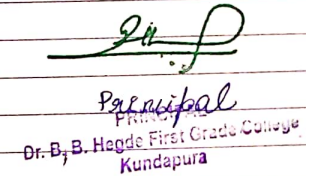 Principal
PRINCIPAL
Dr. B. B. Hegde First Grade College
Kundapura